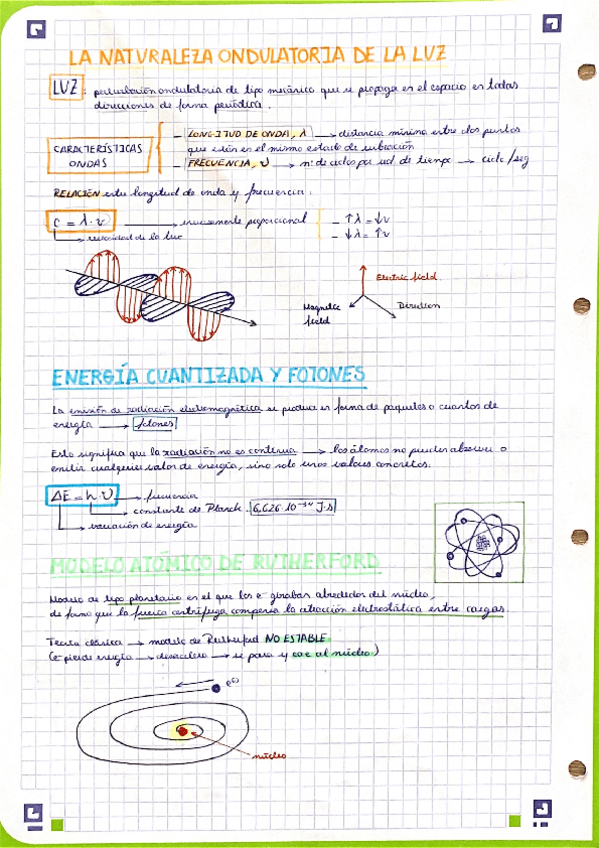 LA NATURALEZA ONDULATORIA DE LA LUZ
LUZ: perturbación ondulatoria de tipo mecánico que se propaga en el espacio en todas
direcciones de forma periódica.
CARACTERÍSTICAS
ONDAS
- LONGITUD DE ONDA, λ → distancia mínima entre dos puntos
que estén en el mismo estado de vibración
- FRECUENCIA, ν → nº de ciclos por ud. de tiempo → ciclo/seg
RELACIÓN entre longitud de onda y frecuencia:
c = λ · ν → inversamente proporcional
- ↑λ = ↓ν
- ↓λ = ↑ν
velocidad de la luz
Electric field
Magnetic
field
Direction
ENERGÍA CUANTIZADA Y FOTONES
La emisión de radiación electromagnética se produce en forma de paquetes o cuantos de
energía → fotones
Esto significa que la radiación no es continua → los átomos no pueden absorver o
emitir cualquier valor de energía, sino solo unos valores concretos.
ΔE = h · ν → frecuencia
constante de Planck. 6,626·10⁻³⁴ J·s
variación de energía
MODELO ATÓMICO DE RUTHERFORD
Modelo de tipo planetario en el que los e⁻ giraban alrededor del núcleo,
de forma que la fuerza centrífuga compensa la atracción electrostática entre cargas.
Teoría clásica → modelo de Rutherford NO ESTABLE
(e⁻ pierde energía → desacelera → se para y cae al núcleo)
e⁻
núcleo